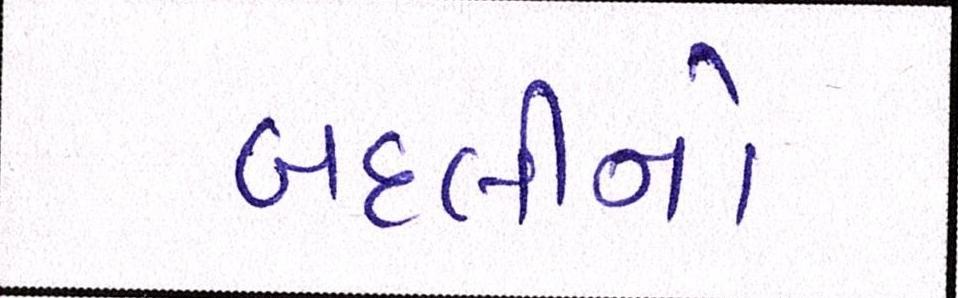 બદલીનો